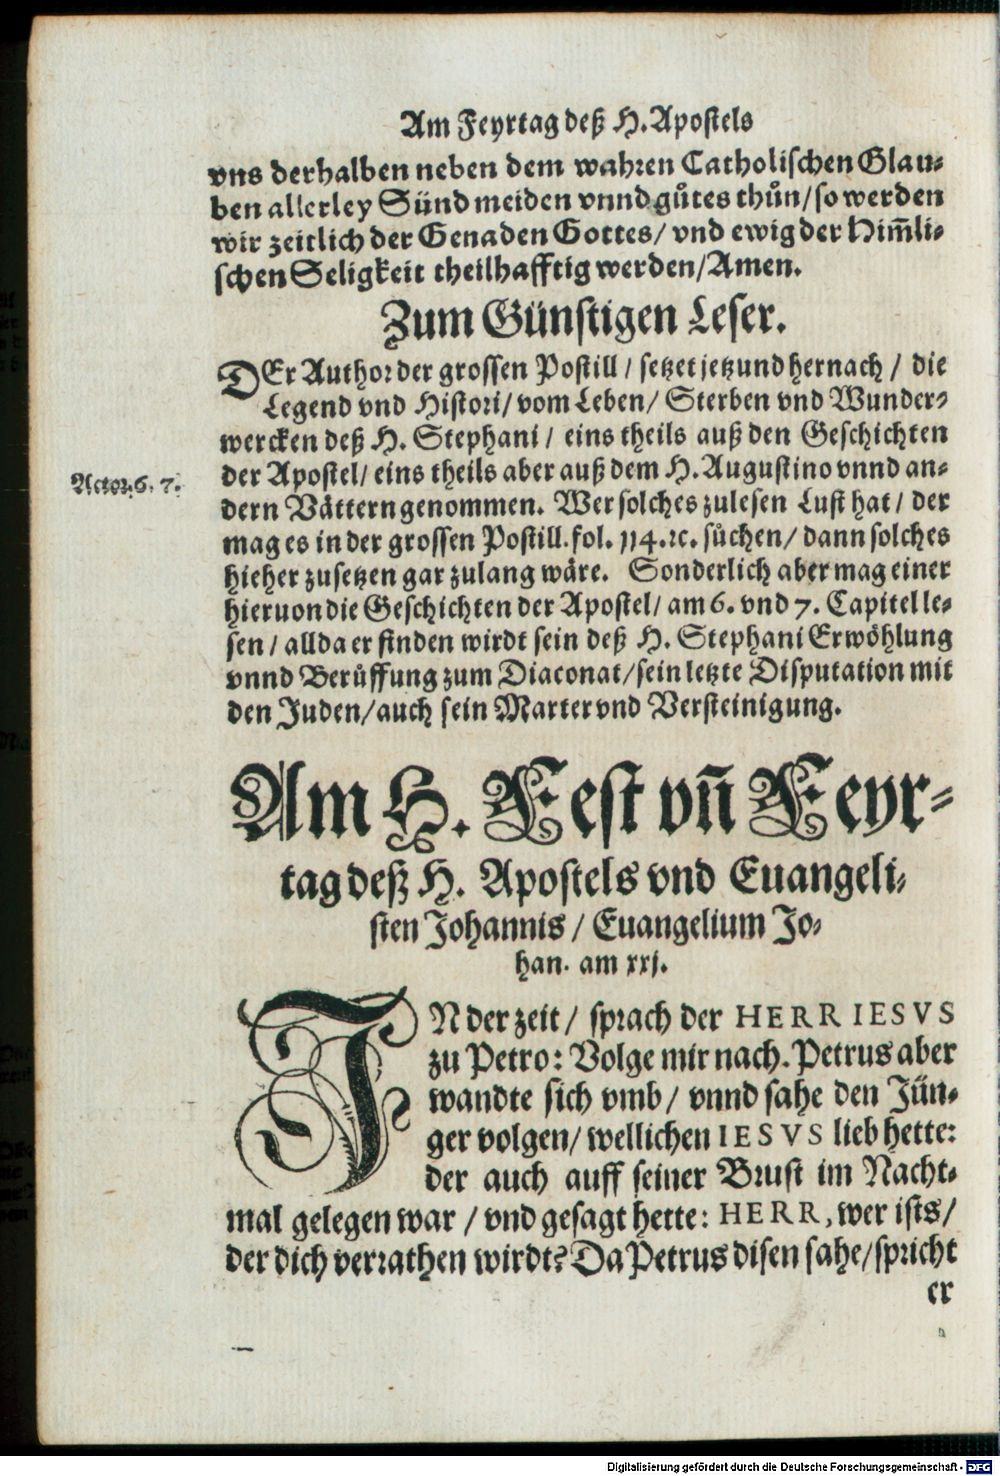 Am Feyrtag deß H. Apostels
vns derhalben neben dem wahren Catholischen Glau⸗
ben allerley Sünd meiden vnnd gůtes thůn/ so werden
wir zeitlich der Genaden Gottes/ vnd ewig der Him̃li⸗
schen Seligkeit theilhafftig werden/ Amen.
Zum Günstigen Leser.
DEr Author der grossen Postill / setzet jetzund hernach / die
Legend vnd Histori/ vom Leben/ Sterben vnd Wunder⸗
wercken deß H. Stephani / eins theils auß den Geschichten
der Apostel/ eins theils aber auß dem H. Augustino vnnd an⸗
Actor. 6. 7.
dern Vättern genommen. Wer solches zulesen Lust hat / der
mag es in der grossen Postill. fol. 114. ꝛc. sůchen/ dann solches
hieher zusetzen gar zulang wäre. Sonderlich aber mag einer
hieruon die Geschichten der Apostel/ am 6. vnd 7. Capitel le⸗
sen / allda er finden wirdt sein deß H. Stephani Erwöhlung
vnnd Berůffung zum Diaconat/ sein letzte Disputation mit
den Juden/ auch sein Marter vnd Versteinigung.
Am H. Fest vñ Feyr⸗
tag deß H. Apostels vnd Euangeli⸗
sten Johannis / Euangelium Jo⸗
han. am xxj.
IN der zeit / sprach der HERR IESVS
zu Petro: Volge mir nach. Petrus aber
wandte sich vmb / vnnd sahe den Jün⸗
ger volgen/ wellichen IESVS lieb hette:
der auch auff seiner Brust im Nacht⸗
mal gelegen war / vnd gesagt hette: HERR, wer ists/
der dich verrathen wirdt? Da Petrus disen sahe/ spricht
er
Digitalisierung gefördert durch die Deutsche Forschungsgemeinschaft - DFG